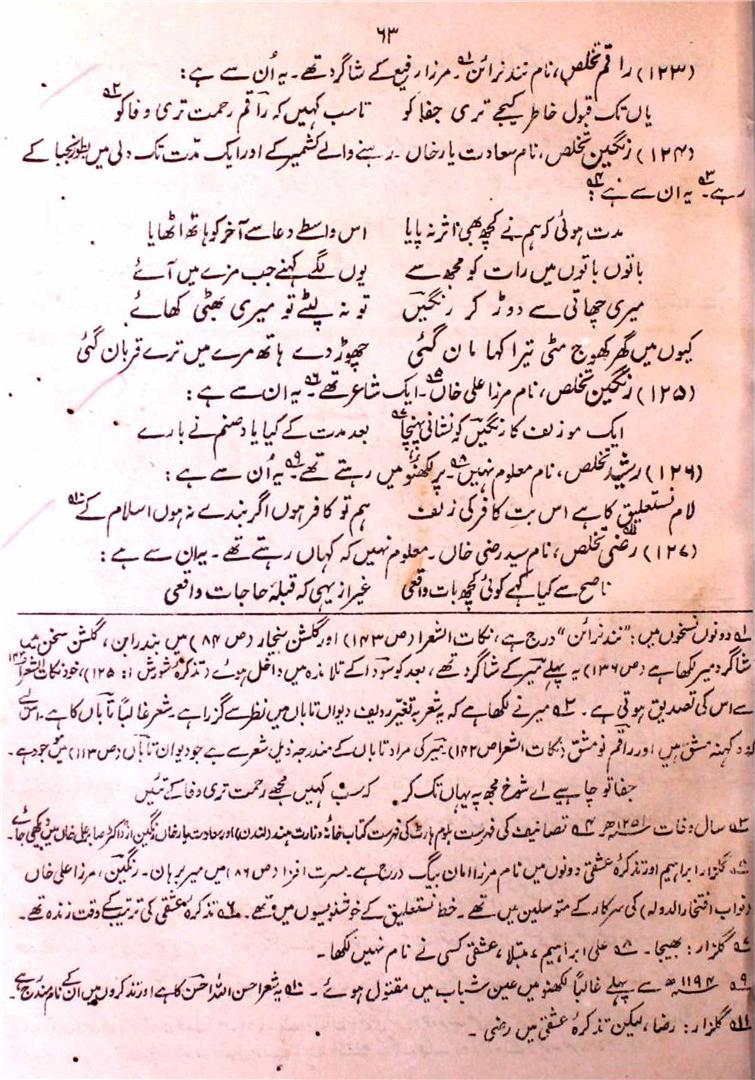 ۶۳
(۱۲۳) راقم تخلص، نام نند نرائن۱؎۔ مرزا رفیع کے شاگرد تھے۔ یہ اُن سے ہے:
یاں تک قبول خاطر کیجے تری جفا کو تا سب کہیں کہ راقم رحمت تری وفا کو۲؎
(۱۲۴) رنگین تخلص، نام سعادت یار خاں۔ رہنے والے کشمیر کے اور ایک مدت تک دلی میں بطور نجبا کے
رہے۳؎۔ یہ ان سے ہے۴؎:
مدت ہوئی کہ ہم نے کچھ بھی اثر نہ پایا اس واسطے دعا سے آخر کو ہاتھ اٹھایا
باتوں باتوں میں رات کو مجھ سے یوں لگے کہنے جب مزے میں آئے
میری چھاتی سے دوڑ کر رنگیں تو نہ لپٹے تو میری بھٹی کھائے
کیوں میں گھر کھوج مٹی تیرا کہا مان گئی چھوڑ دے ہاتھ مرے میں ترے قربان گئی
(۱۲۵) رنگین تخلص، نام مرزا علی خاں۵؎۔ ایک شاعر تھے۶؎۔ یہ ان سے ہے:
ایک مو زلف کا رنگیں کو نشانی پہنچا۷؎ بعد مدت کے کیا یاد صنم نے بارے
(۱۲۶) رشید تخلص، نام معلوم نہیں۸؎۔ پر لکھنؤ میں رہتے تھے۹؎۔ یہ اُن سے ہے:
لام نستعلیق کا ہے اس بت کافر کی زلف ہم تو کافر ہوں اگر بندے نہ ہوں اسلام کے۱۰؎
(۱۲۷) رضی۱۱؎ تخلص، نام سید رضی خاں۔ معلوم نہیں کہ کہاں رہتے تھے۔ یہ ان سے ہے:
ناصح سے کیا کہے کوئی کچھ بات واقعی غیر از یہی کہ قبلۂ حاجات واقعی
۱؎ دونوں نسخوں میں: "نند نرائن" درج ہے، نکات الشعرا (ص ۱۴۳) اور گلشن بیخار (ص ۸۴) میں بندرابن، گلشن سخن میں
شاگرد میر لکھا ہے (ص ۱۳۶) یہ پہلے میر کے شاگرد تھے، بعد کو سودا کے تلامذہ میں داخل ہوئے (تذکرہ شورش ۱: ۱۲۵)، خود نکات الشعرا
سے اس کی تصدیق ہوتی ہے۔ ۲؎ میر نے لکھا ہے کہ یہ شعر بہ تغیر ردیف دیوان تاباں میں نظر سے گزرا ہے۔ شعر غالباً تاباں کا ہے۔ اس لیے
کہ وہ کہنہ مشق ہیں اور راقم نو مشق (نکات الشعرا ص ۱۴۲) میر کی مراد تاباں کے مندرجہ ذیل شعر سے ہے جو دیوان تاباں (ص ۱۱۳) میں موجود ہے۔
جفا تو چاہیے اے شوخ مجھ پہ یہاں تک کر کہ سب کہیں مجھے رحمت تری وفا کے تئیں
۳؎ سال وفات ۱۲۵۱ھ ۴؎ تصانیف کی فہرست بلوم ہارٹ کی فہرست کتاب خانۂ وزارت ہند (لندن) اور سعادت یار خاں رنگین از ڈاکٹر صابر علی خاں میں دیکھی جائے۔
۵؎ گلزار ابراہیم اور تذکرہ عشقی دونوں میں نام مرزا امان بیگ درج ہے۔ مسرت افزا (ص ۸۶) میں میر برہان۔ رنگین، مرزا علی خاں
(نواب افتخار الدولہ) کی سرکار کے متوسلین میں تھے۔ خط نستعلیق کے خوشنویسوں میں تھے۔ ۶؎ تذکرہ عشقی کی ترتیب کے وقت زندہ تھے۔
۷؎ گلزار: بھیجا۔ ۸؎ علی ابراہیم، مبتلا، عشقی کسی نے نام نہیں لکھا۔
۹؎ ۱۱۹۴ھ سے پہلے غالباً لکھنؤ میں عین شباب میں مقتول ہوئے۔ ۱۰؎ یہ شعر احسن اللہ احسن کا ہے اور تذکروں میں ان کے نام مندرج ہے۔
۱۱؎ گلزار: رضا، لیکن تذکرۂ عشقی میں رضی۔